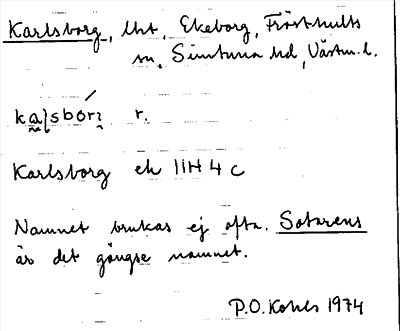 Karlsborg, lht, Ekeborg, Frösthults
sn, Simtuna hd, Västm. l.
r.
Karlsborg ek 11H 4 c
Namnet brukas ej ofta. Sotarens
är det gängse namnet.
P.O. Kohls 1974